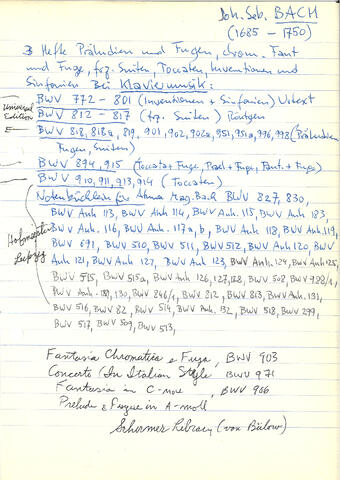 Joh. Seb. BACH
(1685 - 1750)
3 Hefte Präludien und Fugen, chrom. Fant
und Fuge, frz. Suiten, Toccaten, Inventionen und
Sinfonien Bei Klaviermusik:
Universal Edition
BWV 772 - 801 (Inventionen + Sinfonien) Urtext
BWV 812 - 817 (frz. Suiten) Röntgen
BWV 818, 818a, 819, 901, 902, 902a, 951, 951a, 996, 998 (Präludien
Fugen, Suiten)
BWV 894, 915 (Toccata + Fuge, Präel + Fuge, Fant. + Fuge)
BWV 910, 911, 913, 914 (Toccaten)
Notenbüchlein für Anna Mag. Bach BWV 827, 830,
BWV Anh 113, BWV Anh 114, BWV Anh. 115, BWV Anh 183,
BWV Anh. 116, BWV Anh. 117a, b, BWV Anh 118, BWV Anh 119,
BWV 691, BWV 510, BWV 511, BWV 512, BWV Anh 120, BWV
Anh 121, BWV Anh 122, BWV Anh 123, BWV Anh. 124, BWV Anh 125,
BWV 515, BWV 515a, BWV Anh 126, 127, 128, BWV 508, BWV 988/1,
BWV Anh. 129, 130, BWV 846/1, BWV 812, BWV 813, BWV Anh. 131,
BWV 516, BWV 82, BWV 514, BWV Anh 132, BWV 518, BWV 299,
BWV 517, BWV 509, BWV 513,
Leipzig
Fantasia Chromatica e Fuga, BWV 903
Concerto (In Italian Style) BWV 971
Fantasia in C-, BWV 906
Prelude & Fugue in A-moll
Schirmer Library (von Bülow)